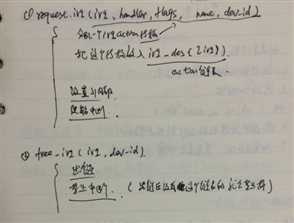 ① request_irq(irq, handler, flags, name, dev_id)
分配一个irqaction结构
把这个结构放入 irq_desc[irq]
action链表
设置引脚
使能中断
② free_irq(irq, dev_id)
出链
禁止中断